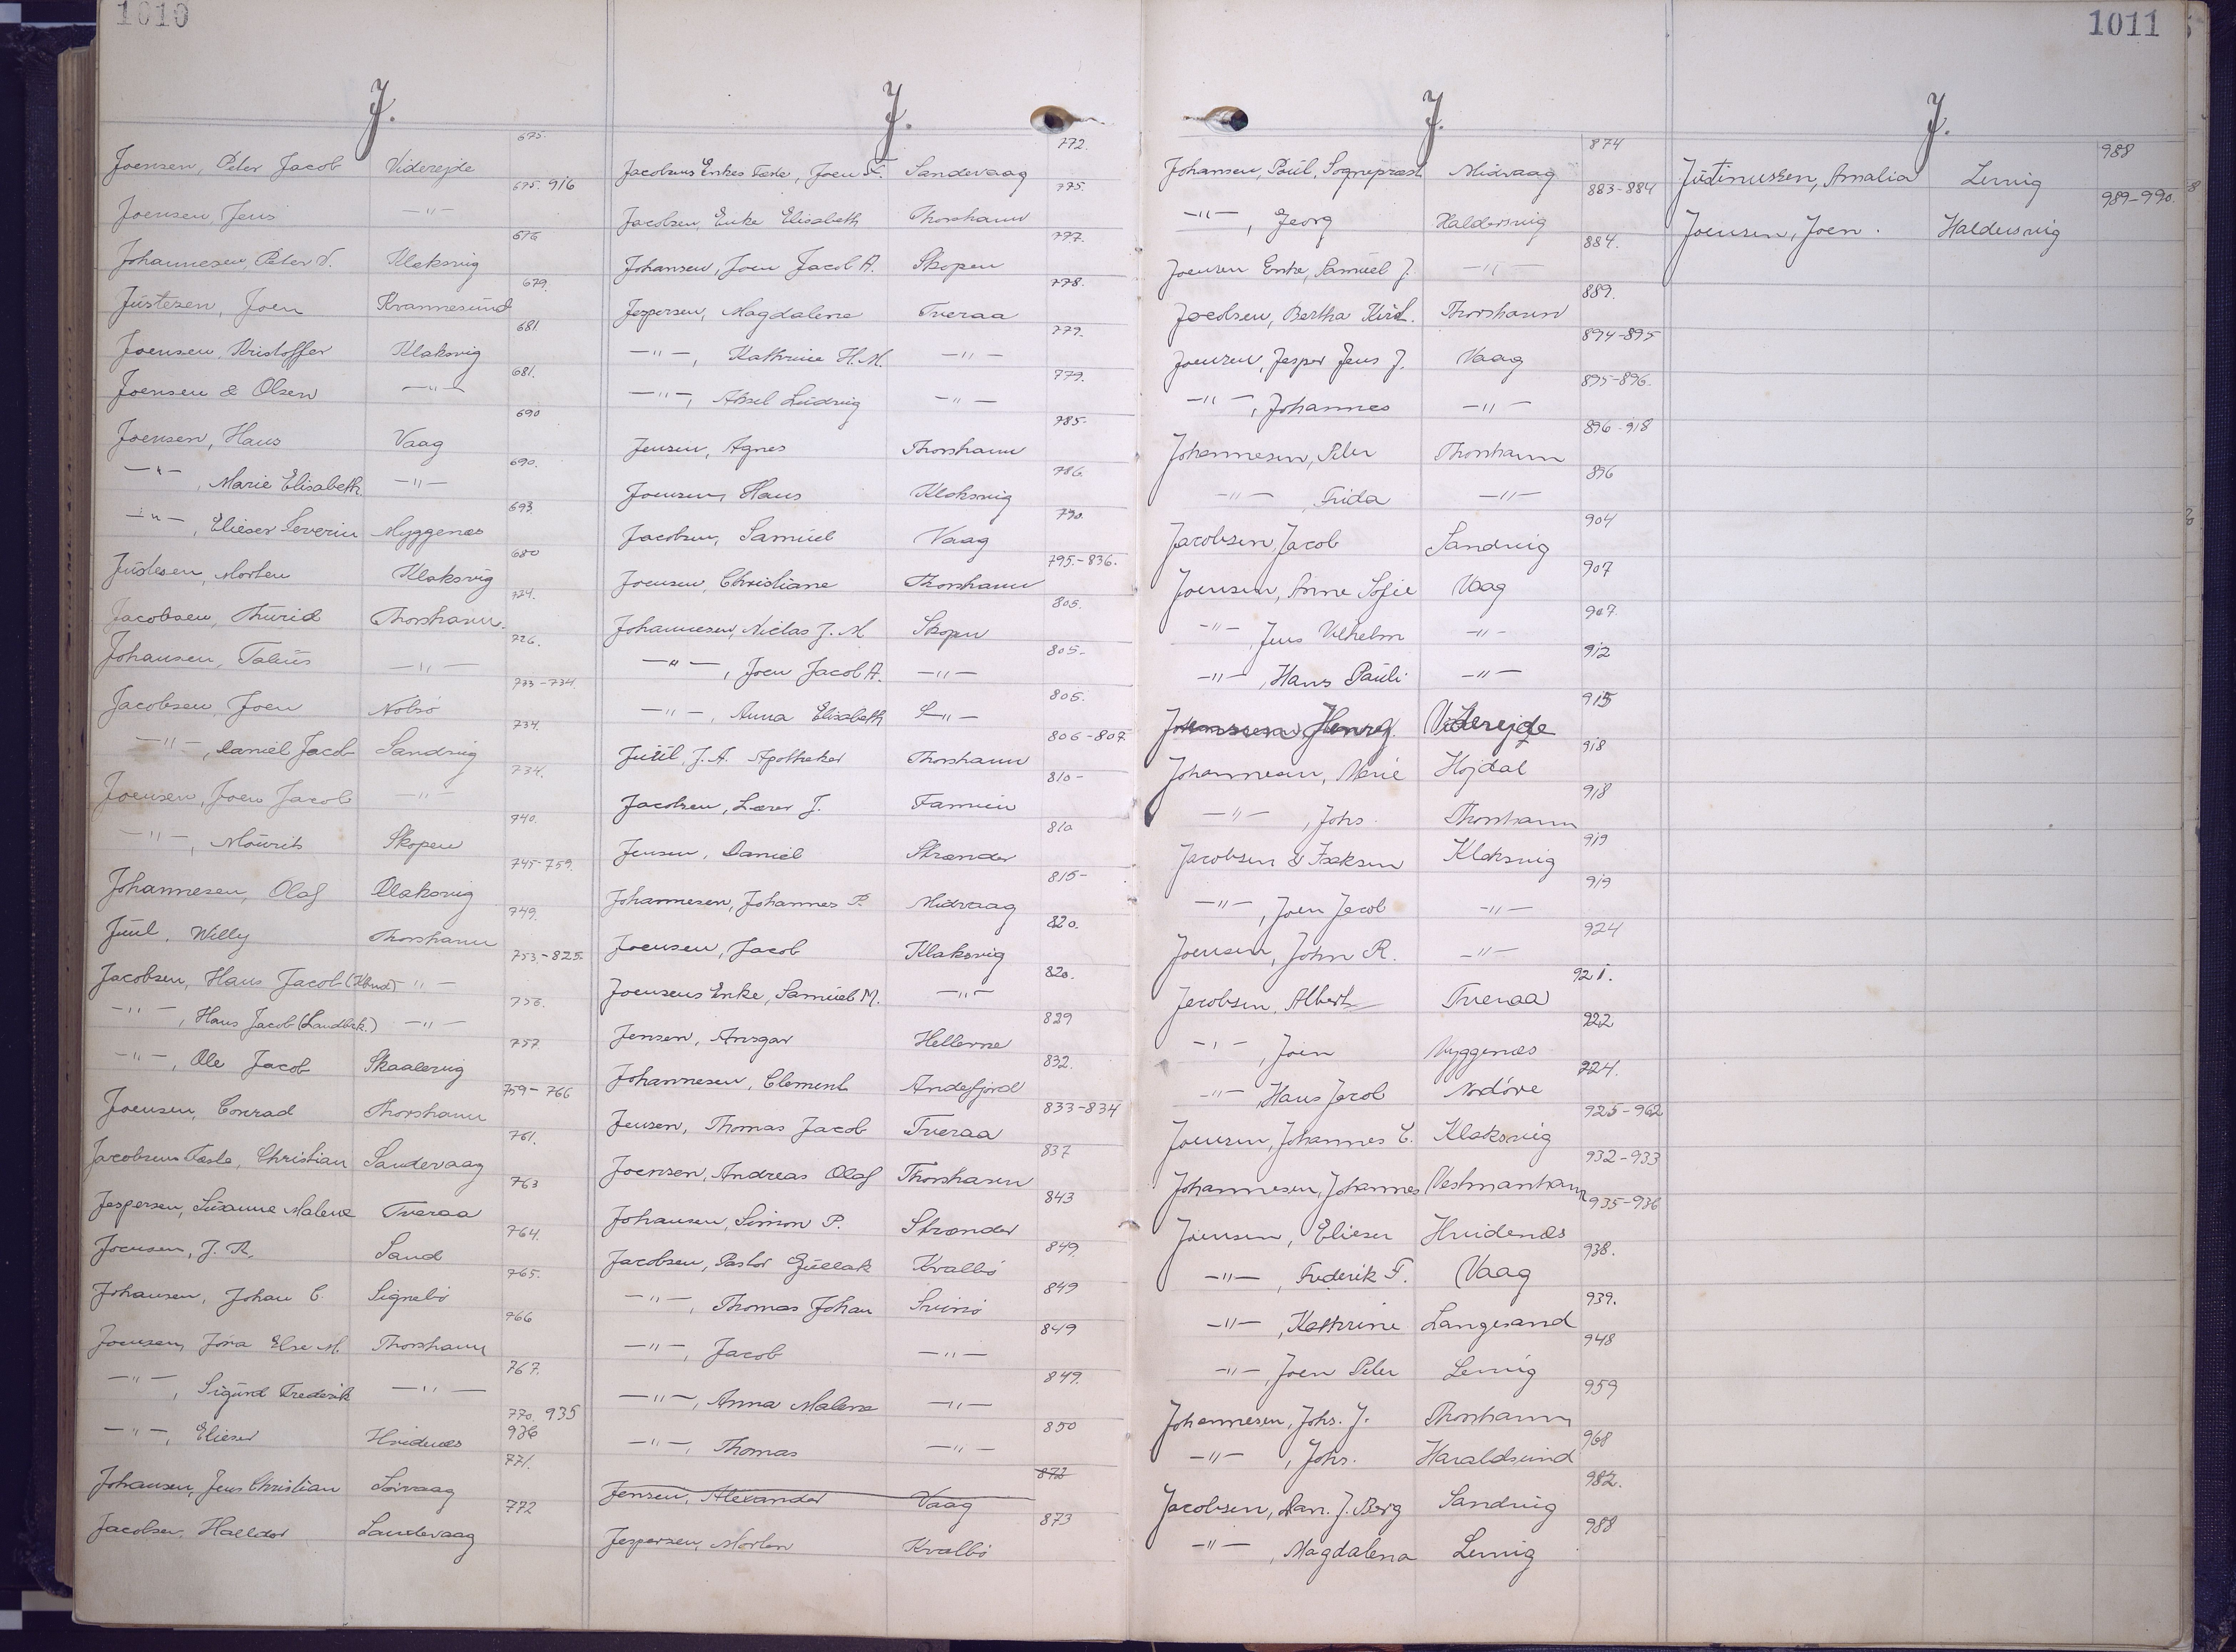 1010
J.
Joensen, Peter Jacob Viderejde 675.
Joensen, Jens —"— 675. 916
Johannesen, Peter V. Klaksvig 676
Justesen, Joen Kvannesund 679.
Joensen, Kristoffer Klaksvig 681
Joensen & Olsen —"— 681.
Joensen, Hans Vaag 690
—"—, Marie Elisabeth —"— 690.
—"—, Elieser Severin Myggenæs 693.
Justesen, Morten Klaksvig 680
Jacobsen, Thurid Thorshavn. 724.
Johansen, Talius —"— 726.
Jacobsen, Joen Nolsö 733-734.
—"—, Daniel Jacob Sandvig 734.
Joensen, Joen Jacob —"— 734.
—"—, Mourits Skopen 740.
Johannesen, Olaf Klaksvig 745-759.
Juul, Willy Thorshavn 749.
Jacobsen, Hans Jacob (Kbmd) —"— 753.-825.
—"—, Hans Jacob (Landbrk.) —"— 756.
—"—, Ole Jacob Skaalevig 757.
Joensen, Conrad Thorshavn 759-766
Jacobsens Fæste, Christian Sandevaag 761.
Jespersen, Susanne Malene Tveraa 763
Joensen, J. R. Sand 764.
Johansen, Johan C. Signebö 765.
Joensen, Jóna Else M. Thorshavn 766
—"—, Sigurd Frederik —"— 767.
—"—, Elieser Hvidenæs 770. 935 936
Johansen, Jens Christian Sörvaag 771.
Jacobsen, Halldor Sandevaag 772
J.
Jacobsens Enkes Fæste, Joen F. Sandevaag 772.
Jacobsen, Enke Elisabeth Thorshavn 775.
Johansen, Joen Jacob A. Skopen 777.
Jespersen, Magdalene Tveraa 778.
—"—, Kathrine H. M. —"— 779.
—"—, Aksel Ludvig —"— 779.
Jensen, Agnes Thorshavn 785.
Joensen, Hans Klaksvig 786.
Jacobsen, Samuel Vaag 790.
Joensen, Christiane Thorshavn 795.-836.
Johannesen, Niclas J. M. Skopen 805.
—"—, Joen Jacob A. —"— 805.
—"—, Anna Elisabeth —"— 805.
Juul, J. A. Apotheker Thorshavn 806-807
Jacobsen, Lærer J. Famien 810-
Jensen, Daniel Strænder 810
Johannesen, Johannes P. Midvaag 815-
Joensen, Jacob Klaksvig 820.
Joensens Enke, Samuel M. —"— 820.
Jensen, Ansgar Hellerne 829
Johannesen, Clement Andefjord 832.
Jensen, Thomas Jacob Tveraa 833-834
Joensen, Andreas Olaf Thorshavn 837
Johansen, Simon P. Strænder 843
Jacobsen, Pastor Gullak Kvalbö 849.
—"—, Thomas Johan Svinö 849
—"—, Jacob —"— 849
—"—, Anna Malene —"— 849.
—"—, Thomas —"— 850
Jensen, Alexander Vaag 872
Jespersen, Morten Kvalbö 873
1011
J.
Johansen, Paul, Sognepræst Midvaag 874
—"—, Georg Haldersvig 883-884
Joensen Enke, Samuel J. —"— 884.
Jacobsen, Bertha Kirst. Thorshavn 889.
Joensen, Jesper Jens J. Vaag 894-895
—"—, Johannes —"— 895-896.
Johannesen, Peter Thorshavn 896-918
—"—, Frida —"— 896
Jacobsen, Jacob Sandvig 904
Joensen, Anne Sofie Vaag 907
—"—, Jens Vilhelm —"— 907.
—"—, Hans Pauli —"— 912
Henry Viderejde 915
Johannesen, Marie Hojdal 918
—"—, Johs. Thorshavn 918
Jacobsen & Isaksen Klaksvig 919
—"—, Joen Jacob —"— 919
Joensen, John R. —"— 924
Jacobsen, Albert Tveraa 921.
—"—, Joen Myggenæs 922
—"—, Hans Jacob Nordöre 924.
Joensen, Johannes C. Klaksvig 925-962
Johannesen, Johannes Vestmanhavn 932-933
Joensen, Elieser Hvidenæs 935-936
—"—, Frederik F. Vaag 938.
—"—, Kathrine Langesand 939.
—"—, Joen Peter Lervig 948
Johannesen, Johs. J. Thorshavn 959
—"—, Johs. Haraldsund 968
Jacobsen, Dan. J. Berg Sandvig 982.
—"—, Magdalena Lervig 988
J.
Justinussen, Amalia Lervig 988
Joensen, Joen. Haldersvig 989-990.